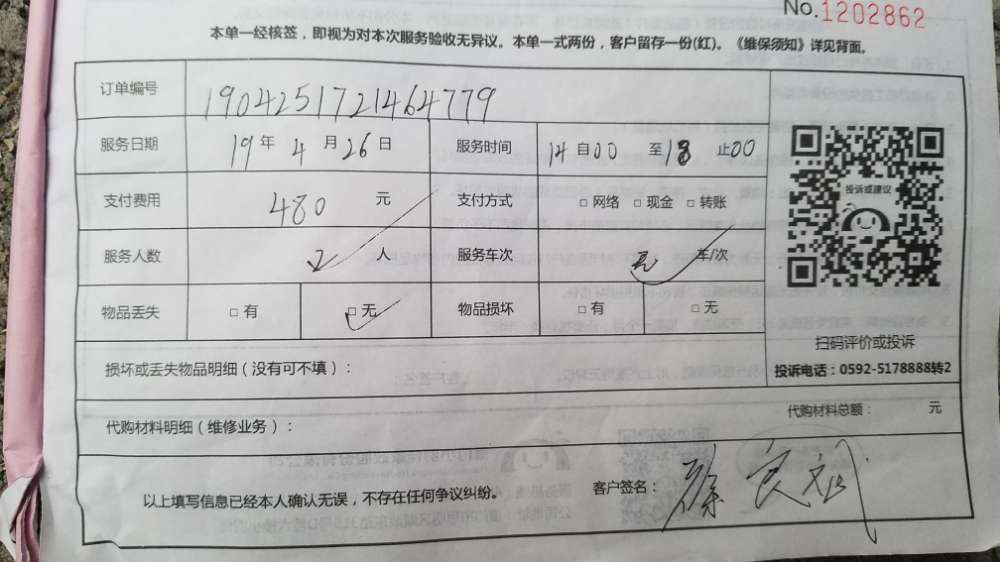 No.1202862
本单一经核签，即视为对本次服务验收无异议。本单一式两份，客户留存一份(红)。《维保须知》详见背面。
订单编号 1904251721464779
服务日期 19年 4月26日 服务时间 14自00至18止00
支付费用 480 元 支付方式 □网络 □现金 □转账
投诉或建议
服务人数 2 人 服务车次 车/次
物品丢失 □有 □无 物品损坏 □有 □无
扫码评价或投诉
损坏或丢失物品明细（没有可不填）：
投诉电话：0592-5178888转2
代购材料明细（维修业务）： 代购材料总额： 元
以上填写信息已经本人确认无误，不存在任何争议纠纷。 客户签名：